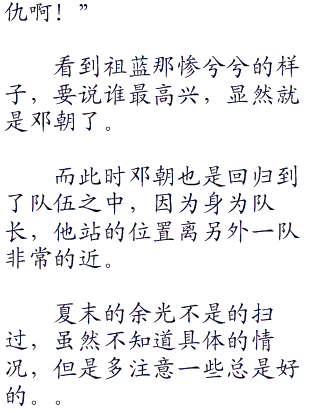 仇啊！”
看到祖蓝那惨兮兮的样
子，要说谁最高兴，显然就
是邓朝了。
而此时邓朝也是回归到
了队伍之中，因为身为队
长，他站的位置离另外一队
非常的近。
夏末的余光不是的扫
过，虽然不知道具体的情
况，但是多注意一些总是好
的。。